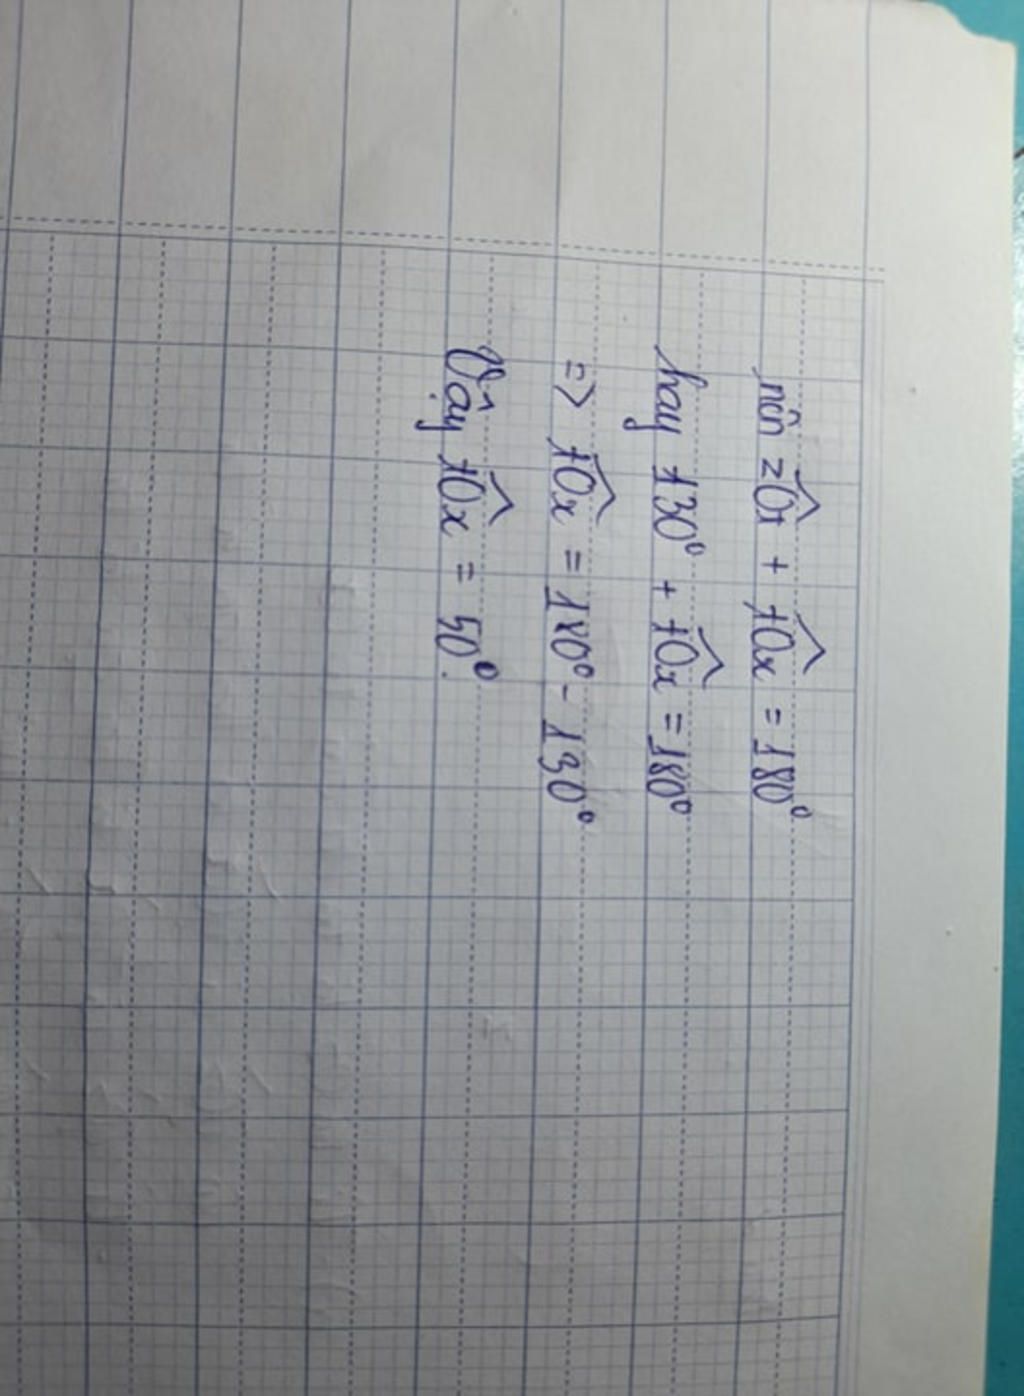 nên $\widehat{zOt}$ + $\widehat{tOx}$ = 180°
hay 130° + $\widehat{tOx}$ = 180°
=> $\widehat{tOx}$ = 180° - 130°
Vậy $\widehat{tOx}$ = 50°.